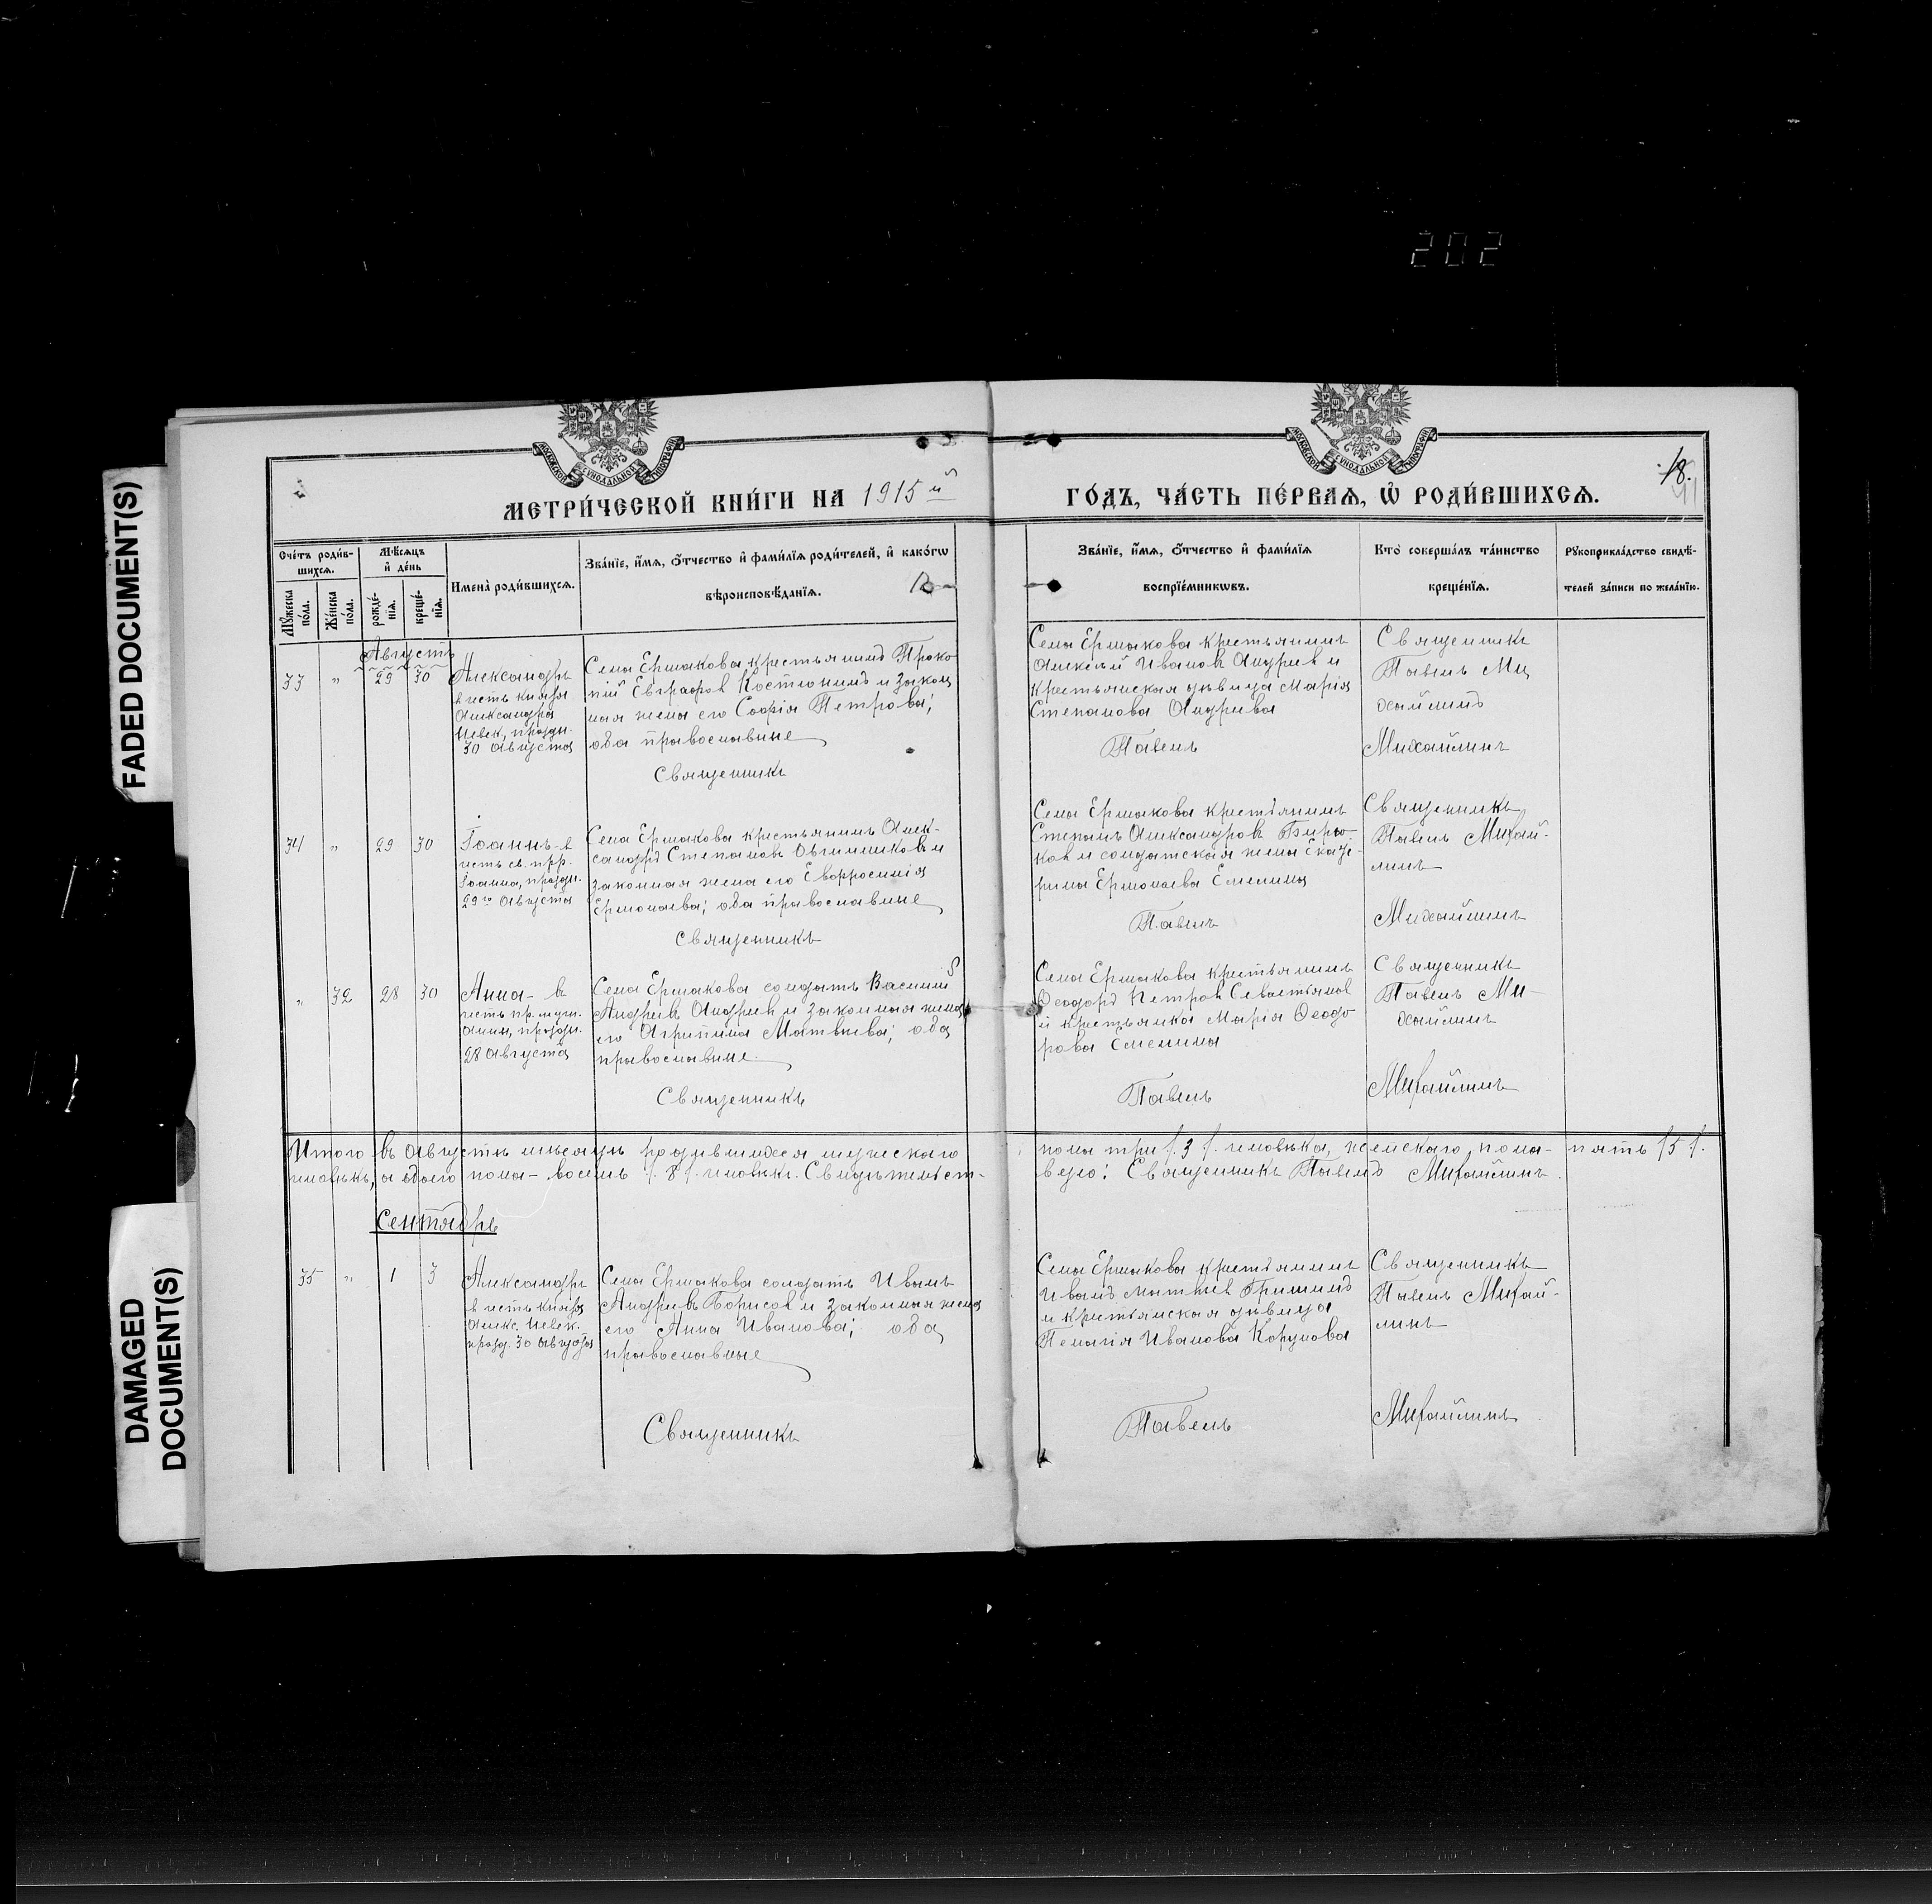 202
FADED DOCUMENT(S)
DAMAGED
DOCUMENT(S)
МОСКОВСКОЙ СУНОДАЛЬНОЙ ТИПОГРАФІИ
МОСКОВСКОЙ СУНОДАЛЬНОЙ ТИПОГРАФІИ
18.
МЕТРИ́ЧЕСКОЙ КНИ́ГИ НА 1915 й
ГО́ДЪ, ЧА́СТЬ ПЕ́РВАѦ, Ѿ РОДИ́ВШИХСѦ.
Сче́тъ роди́в-
шихсѧ.
Мѣ́сѧцъ
и҆ де́нь
Мꙋ́жеска
по́ла.
Же́нска
по́ла.
рожде́-
нїѧ.
креще́-
нїѧ.
Имена̀ роди́вшихсѧ.
Зва́нїе, и҆́мѧ, ѻ҆́тчество и҆ фами́лїѧ роди́телей, и҆ како́гѡ
вѣроисповѣ́данїѧ.
Зва́нїе, и҆́мѧ, ѻ҆́тчество и҆ фами́лїѧ
воспрїе́мникѡвъ.
Кто̀ соверша́лъ та́инство
креще́нїѧ.
Рꙋкоприкла́дство свидѣ́-
телей за́писи по жела́нїю.
Августъ
33 " 29 30
Александръ
в честь князя
Александра
Невск., праздн.
30 августа
Села Ермакова крестьянинъ Проко
пій Евграфов Костюнинъ и закон
ная жена его Софія Петрова;
оба православные
Священникъ
Села Ермакова крестьянинъ
Алексѣй Иванов Андреев и
крестьянская дѣвица Марія
Степанова Андреева
Павелъ
Священникъ
Павелъ Ми
хайлинъ
Михайлинъ
34 " 29 30
Іоаннъ - в
честь св. прр.
Іоанна, праздн.
29го августа
Села Ермакова крестьянинъ Алек-
сандръ Степанов Овчинников и
законная жена его Евфросинія
Ермолаева; оба православные
Священникъ
Села Ермакова крестьянинъ
Степанъ Александров Бирю-
ков и солдатская жена Екате-
рина Ермолаева Емелина
Павелъ
Священникъ
Павелъ Михай-
линъ
Михайлинъ
" 32 28 30
Анна - в
честь пр. муч.
Анны, праздн.
28 августа
Села Ермакова солдатъ Василій
Андреев Андреев и законная жена
его Агрипина Матвѣева; оба
православные
Священникъ
Села Ермакова крестьянинъ
Ѳеодоръ Петров Севастьянов
и крестьянка Марія Ѳеодо
рова Емелина
Павелъ
Священникъ
Павелъ Ми-
хайлинъ
Михайлинъ
Итого въ Августѣ мѣсяцѣ родившихся мужескаго
пола три /. 3 /. человѣка, женскаго пола - пять /5 /.
человѣкъ, а обоего пола - восемь /. 8 /. человѣкъ. Свидѣтельст-
вую: Священникъ Павелъ Михайлинъ
Сентябрь
35 " 1 3
Александръ
в честь князя
Алекс. Невск.
празд. 30 августа
Села Ермакова солдатъ Иванъ
Андреевъ Борисов и законная жена
его Анна Иванова; оба
православные
Священникъ
Села Ермакова крестьянинъ
Иванъ Матвѣев Гришинъ
и крестьянская дѣвица
Пелагія Иванова Корунова
Павелъ
Священникъ
Павелъ Михай-
линъ
Михайлинъ